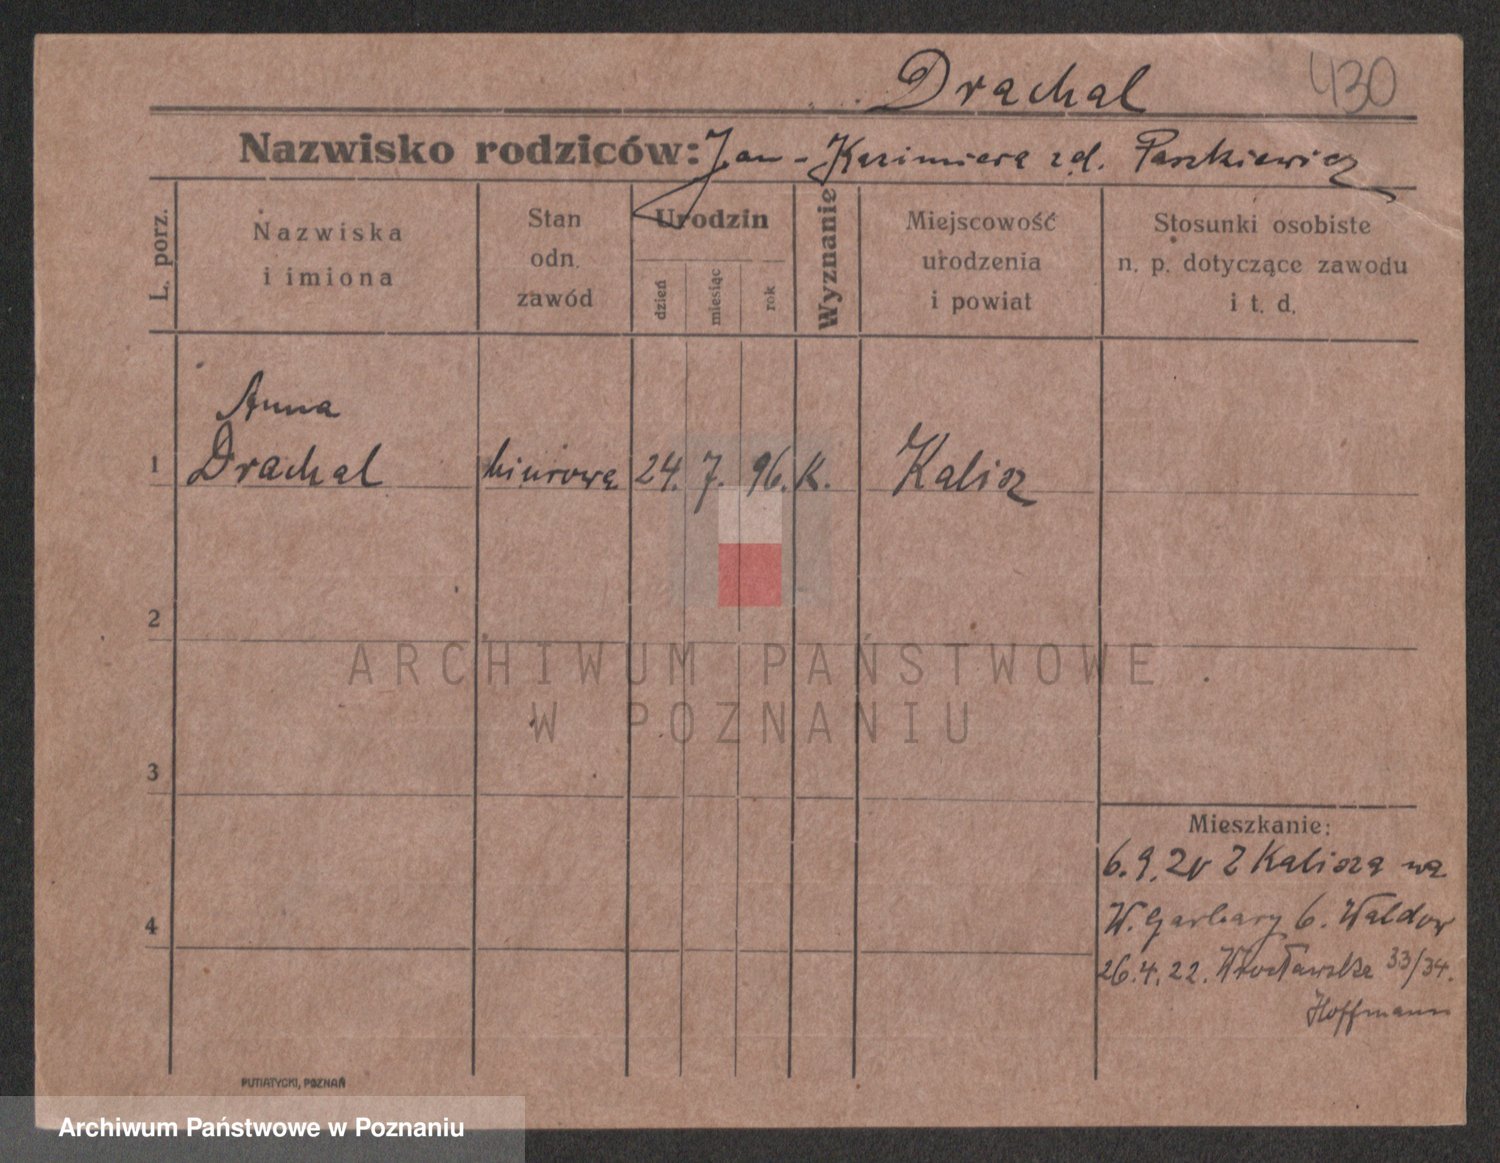 Drachal 430
Nazwisko rodziców: Jan - Kazimiera zd. Paszkiewicz
L. porz.
Nazwiska
i imiona
Stan
odn.
zawód
Urodzin
dzień
miesiąc
rok
Wyznanie
Miejscowość
urodzenia
i powiat
Stosunki osobiste
n. p. dotyczące zawodu
i t. d.
Anna
1 Drachal biurowa 24. 7. 96. K. Kalisz
2
ARCHIWUM PAŃSTWOWE
W POZNANIU
3
Mieszkanie:
6.9.20 Z Kalisza na
4 W. Garbary 6. Waldow
26.4.22. Wrocławska 33/34.
Hoffmann
PUTIATYCKI, POZNAŃ
Archiwum Państwowe w Poznaniu